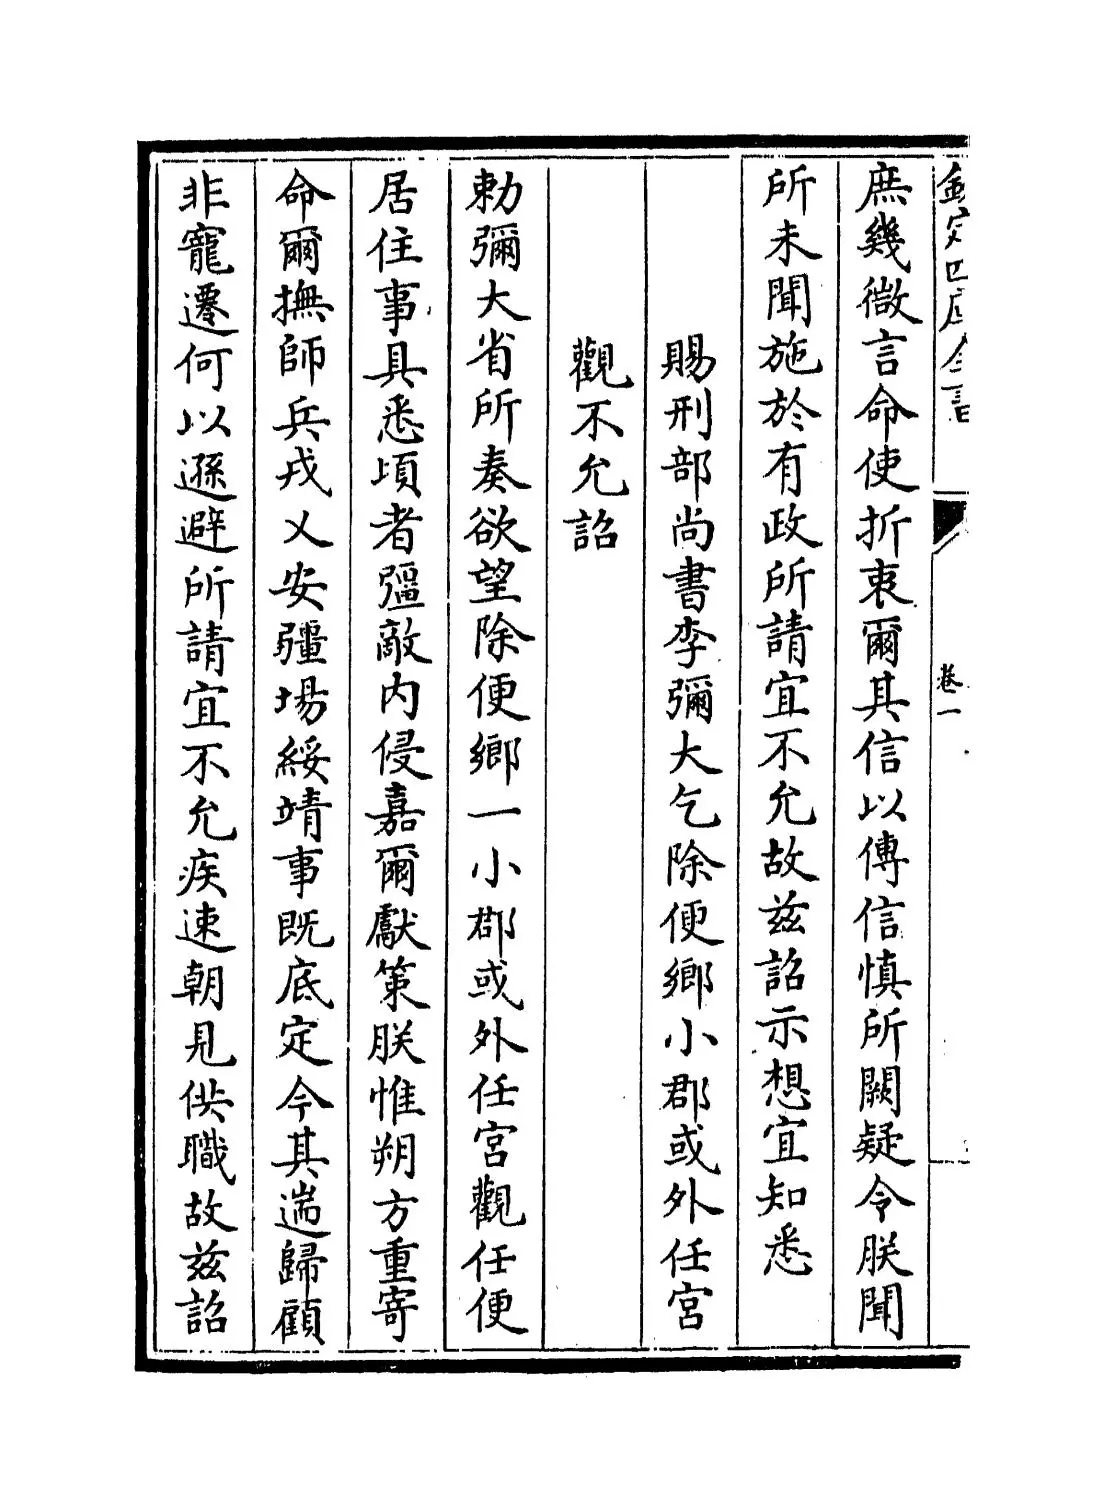 欽定四庫全書
卷一
庶幾微言命使折衷爾其信以傳信慎所闕疑令朕聞
所未聞施於有政所請宜不允故兹詔示想宜知悉
賜刑部尚書李彌大乞除便鄉小郡或外任宮
觀不允詔
勅彌大省所奏欲望除便鄉一小郡或外任宮觀任便
居住事具悉頃者彊敵内侵嘉爾獻策朕惟朔方重寄
命爾撫師兵戎乂安疆場綏靖事既底定今其遄歸顧
非寵遷何以遜避所請宜不允疾速朝見供職故兹詔